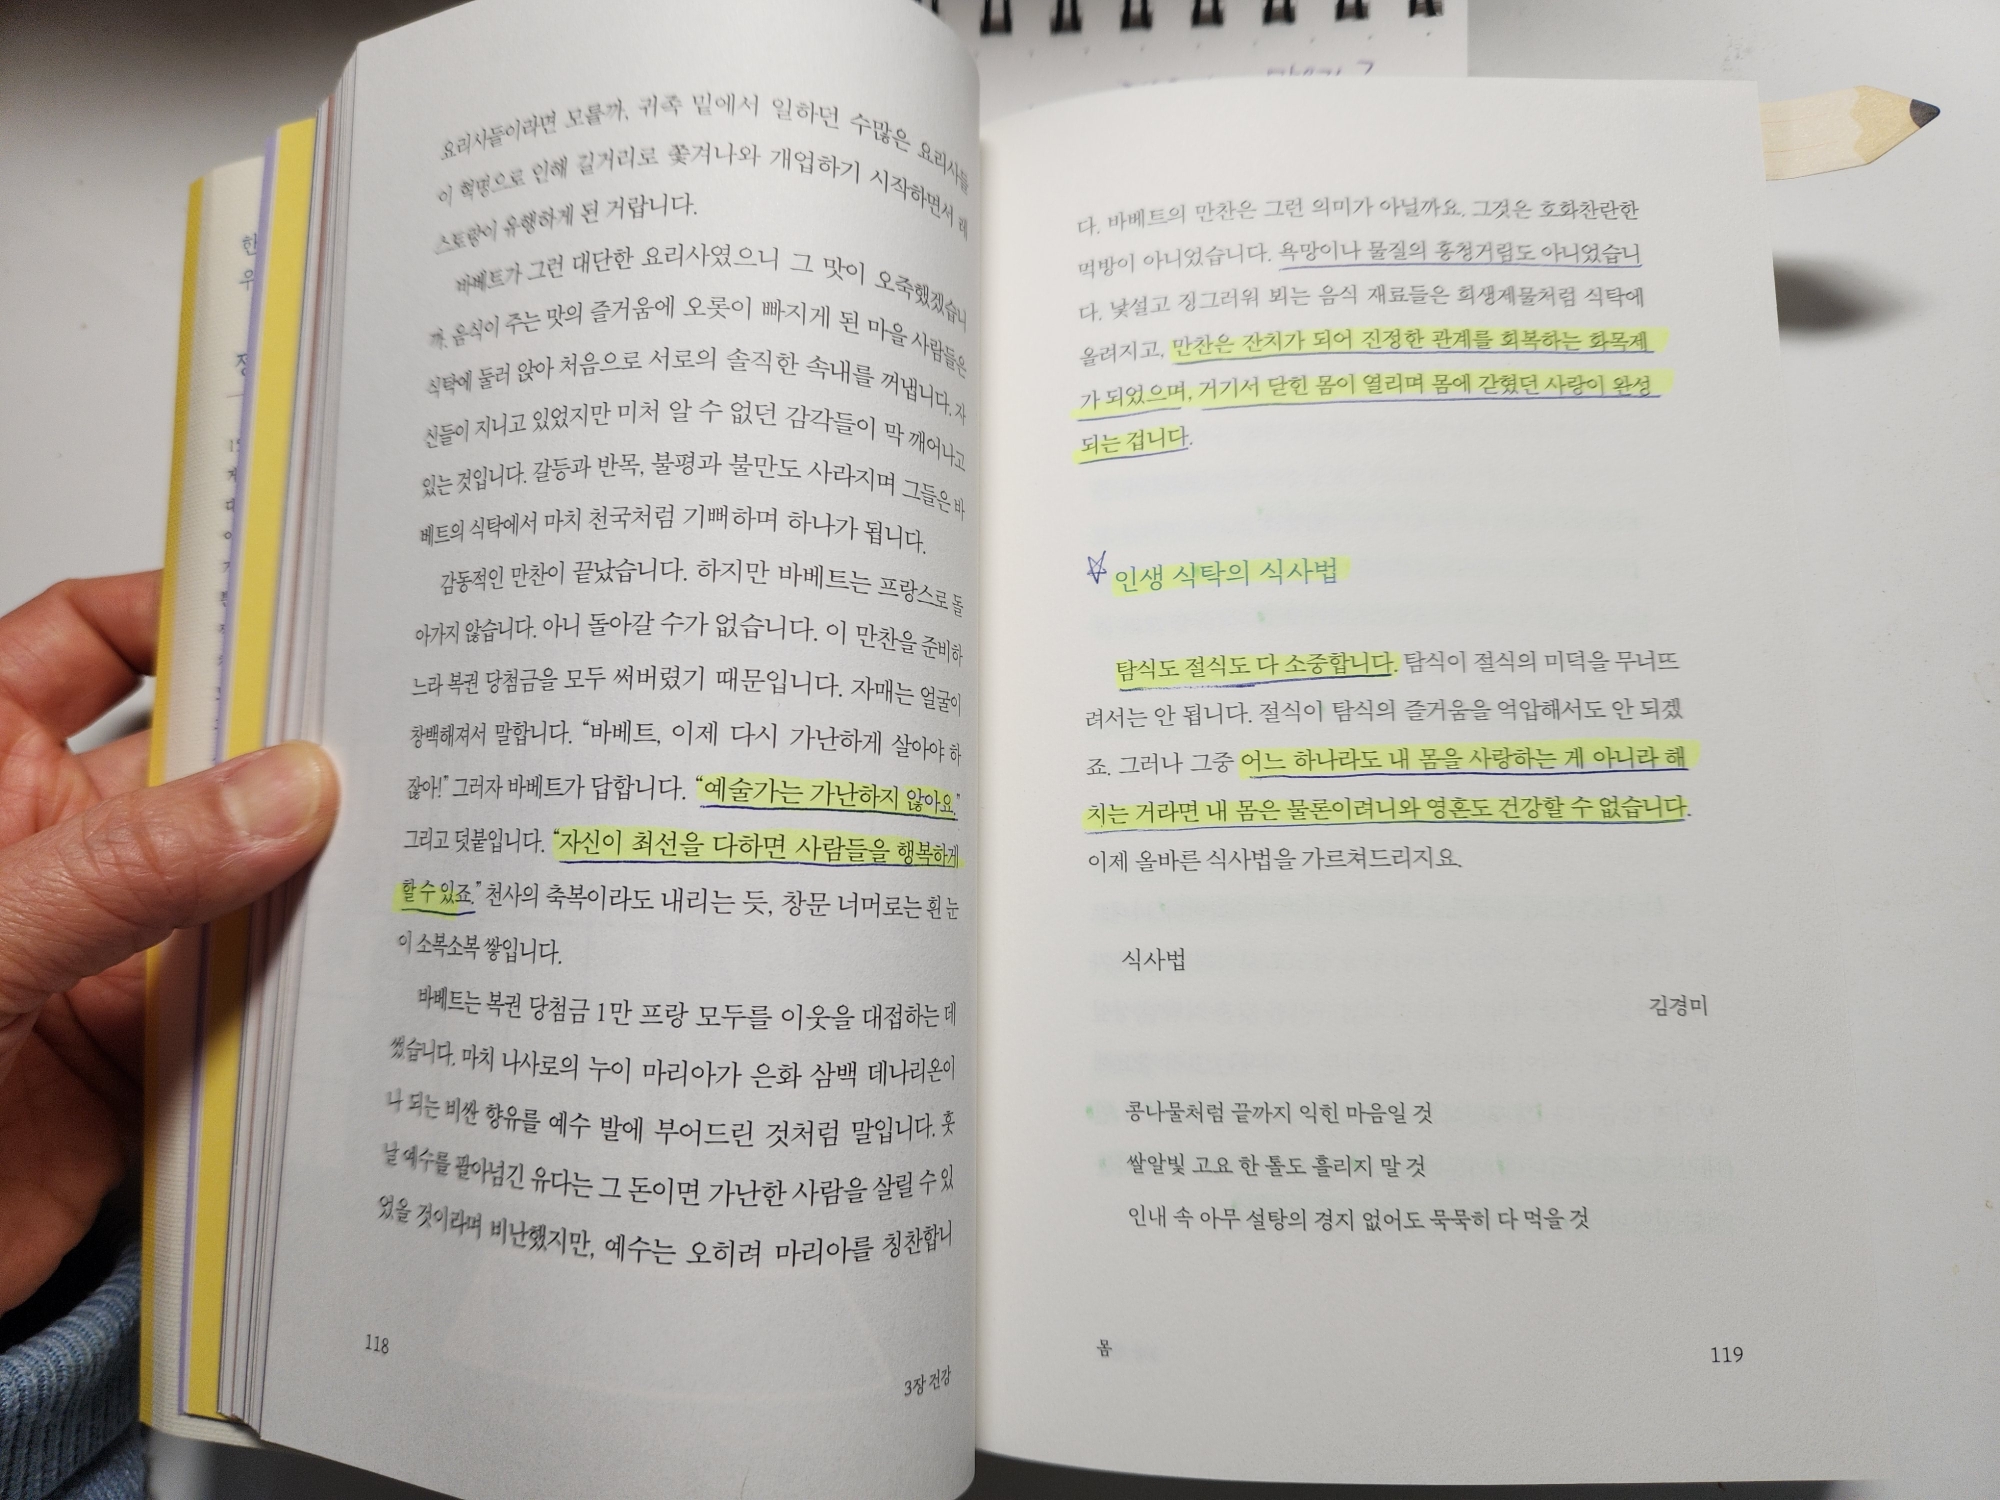 요리사들이라면 모를까, 귀족 밑에서 일하던 수많은 요리사들
이 혁명으로 인해 길거리로 쫓겨나와 개업하기 시작하면서 레
스토랑이 유행하게 된 거랍니다.
바베트가 그런 대단한 요리사였으니 그 맛이 오죽했겠습니
까. 음식이 주는 맛의 즐거움에 오롯이 빠지게 된 마을 사람들은
식탁에 둘러 앉아 처음으로 서로의 솔직한 속내를 꺼냅니다. 자
신들이 지니고 있었지만 미처 알 수 없던 감각들이 막 깨어나고
있는 것입니다. 갈등과 반목, 불평과 불만도 사라지며 그들은 바
베트의 식탁에서 마치 천국처럼 기뻐하며 하나가 됩니다.
감동적인 만찬이 끝났습니다. 하지만 바베트는 프랑스로 돌
아가지 않습니다. 아니 돌아갈 수가 없습니다. 이 만찬을 준비하
느라 복권 당첨금을 모두 써버렸기 때문입니다. 자매는 얼굴이
창백해져서 말합니다. “바베트, 이제 다시 가난하게 살아야 하
잖아!” 그러자 바베트가 답합니다. “예술가는 가난하지 않아요.”
그리고 덧붙입니다. “자신이 최선을 다하면 사람들을 행복하게
할 수 있죠.” 천사의 축복이라도 내리는 듯, 창문 너머로는 흰 눈
이 소복소복 쌓입니다.
바베트는 복권 당첨금 1만 프랑 모두를 이웃을 대접하는 데
썼습니다. 마치 나사로의 누이 마리아가 은화 삼백 데나리온이
나 되는 비싼 향유를 예수 발에 부어드린 것처럼 말입니다. 훗
날 예수를 팔아넘긴 유다는 그 돈이면 가난한 사람을 살릴 수 있
었을 것이라며 비난했지만, 예수는 오히려 마리아를 칭찬합니
118
3장 건강
다. 바베트의 만찬은 그런 의미가 아닐까요. 그것은 호화찬란한
먹방이 아니었습니다. 욕망이나 물질의 흥청거림도 아니었습니
다. 낯설고 징그러워 뵈는 음식 재료들은 희생제물처럼 식탁에
올려지고, 만찬은 잔치가 되어 진정한 관계를 회복하는 화목제
가 되었으며, 거기서 닫힌 몸이 열리며 몸에 갇혔던 사랑이 완성
되는 겁니다.
인생 식탁의 식사법
탐식도 절식도 다 소중합니다. 탐식이 절식의 미덕을 무너뜨
려서는 안 됩니다. 절식이 탐식의 즐거움을 억압해서도 안 되겠
죠. 그러나 그중 어느 하나라도 내 몸을 사랑하는 게 아니라 해
치는 거라면 내 몸은 물론이려니와 영혼도 건강할 수 없습니다.
이제 올바른 식사법을 가르쳐드리지요.
식사법
김경미
콩나물처럼 끝까지 익힌 마음일 것
쌀알빛 고요 한 톨도 흘리지 말 것
인내 속 아무 설탕의 경지 없어도 묵묵히 다 먹을 것
몸
119